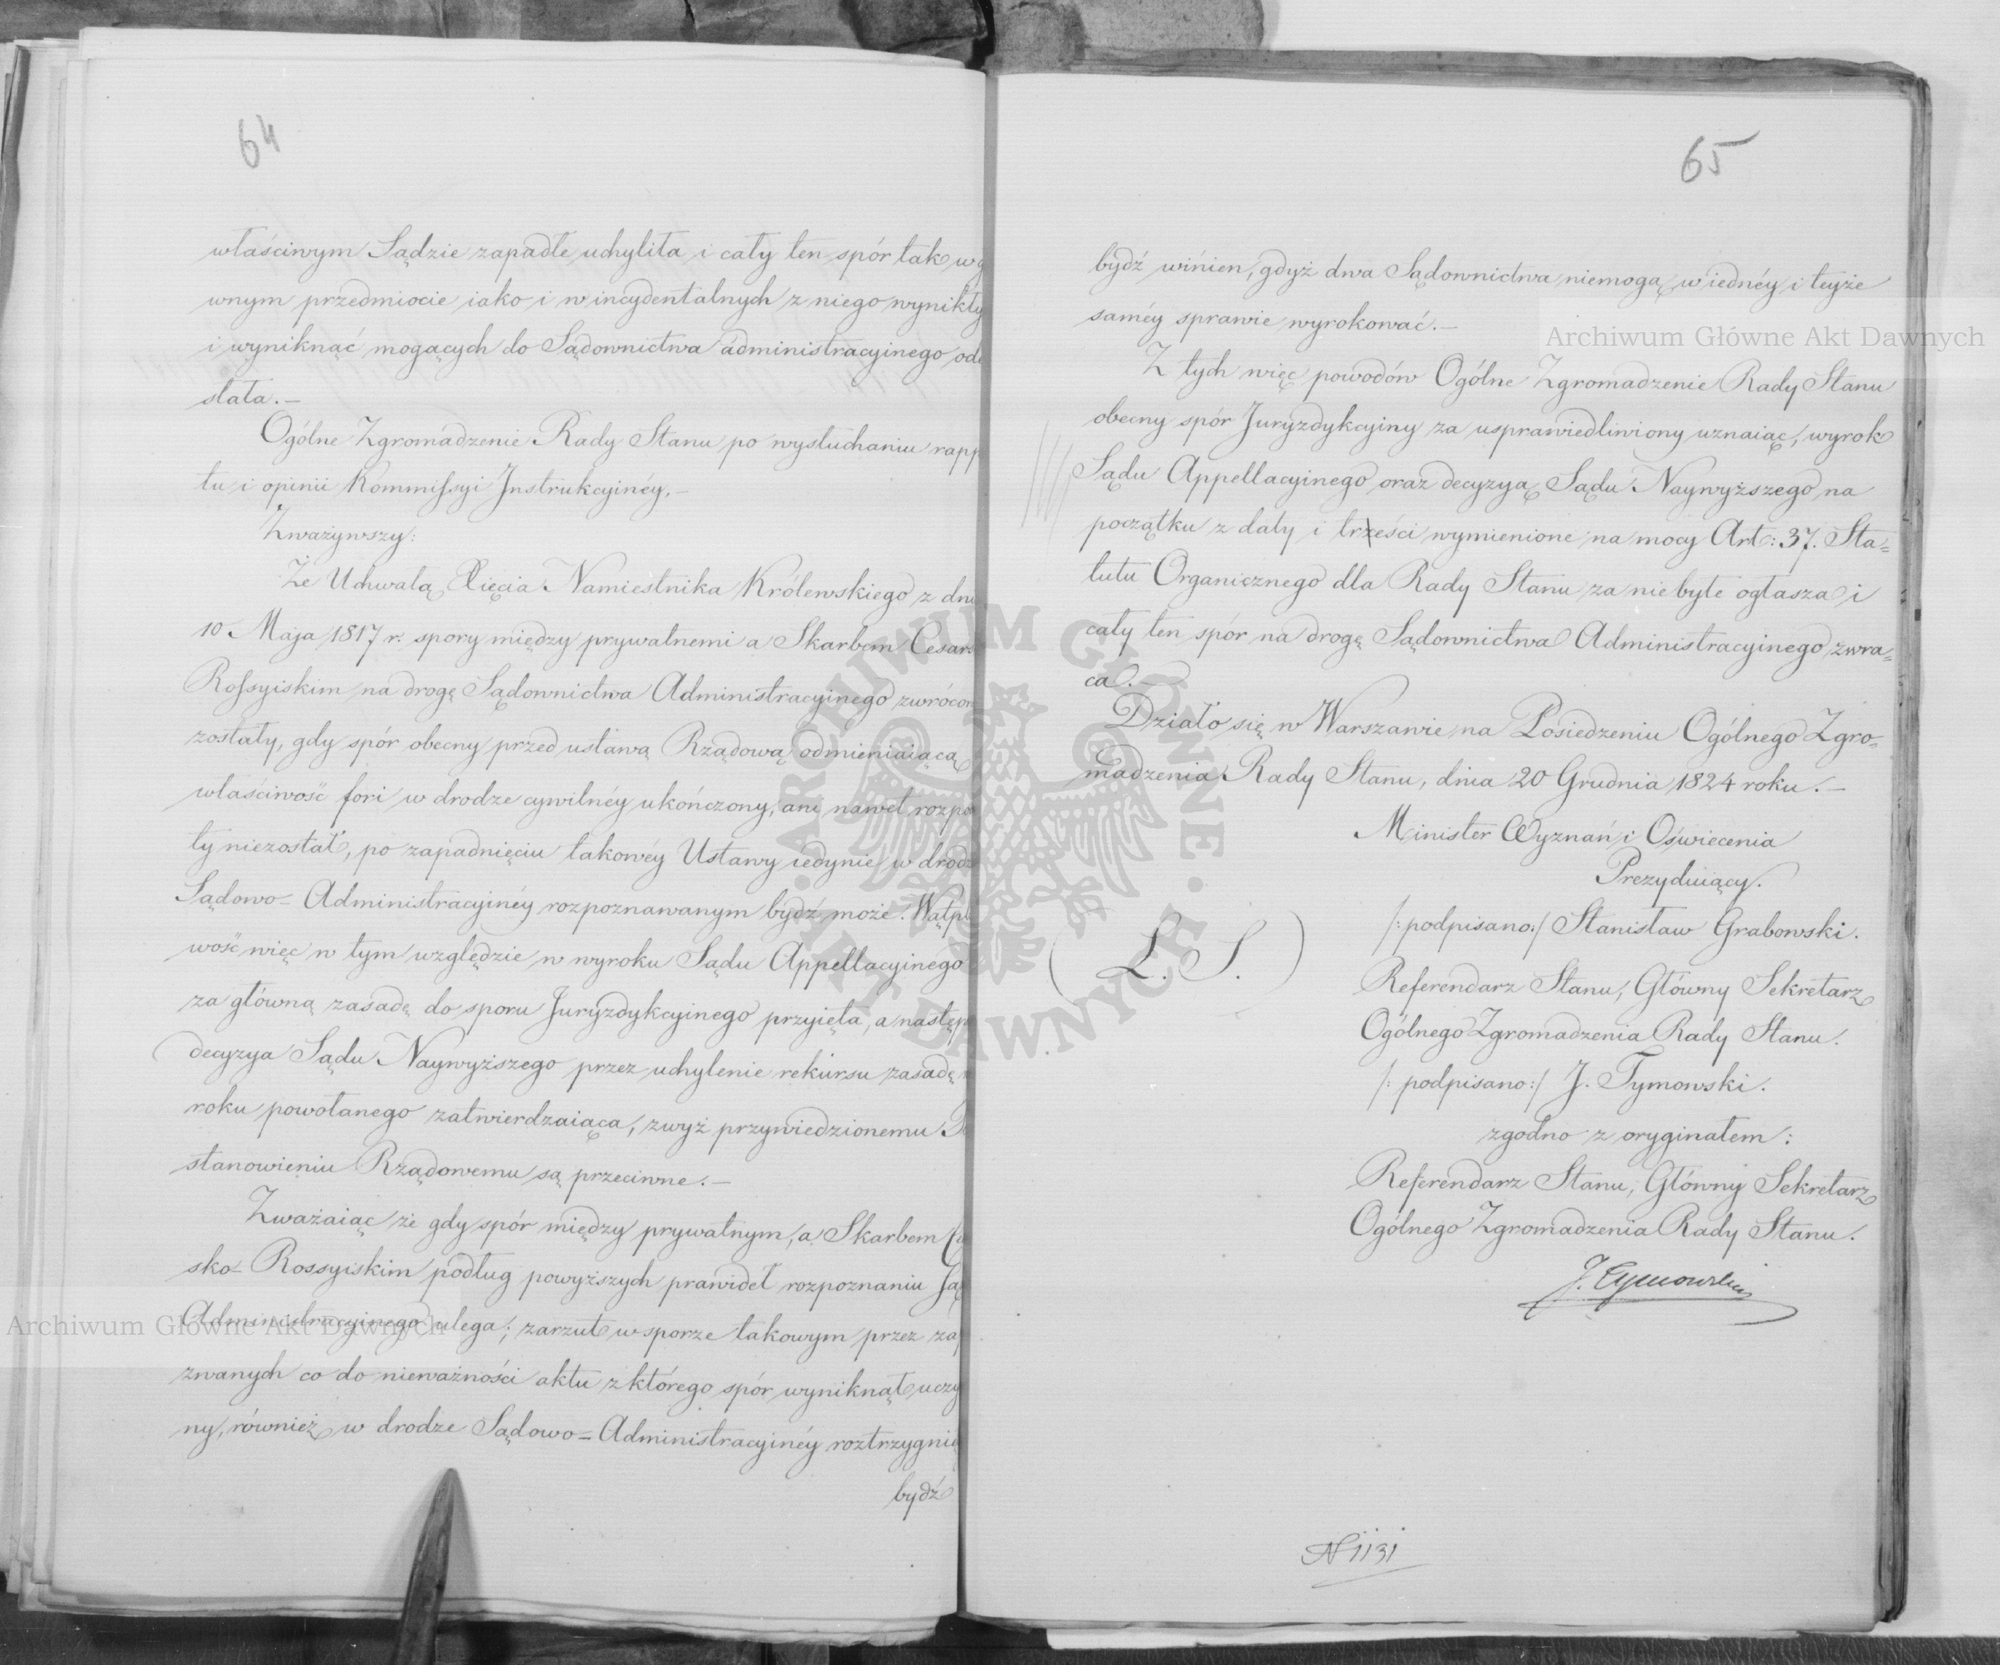 64
właściwym Sądzie zapadłe uchyliła i cały ten spór tak w g
wnym przedmiocie iako i w incydentalnych z niego wynikły
i wyniknąć mogących do Sądownictwa administracyinego ode
słała.—
Ogólne Zgromadzenie Rady Stanu po wysłuchaniu rapp
tu i opinii Kommissyi Instrukcyinéy,—
Zważywszy:
Że Uchwałą Xięcia Namiestnika Królewskiego z dnia
10 Maja 1817 r. spory między prywatnemi a Skarbem Cesars
Rossyiskim na drogę Sądownictwa Administracyinego zwrócon
zostały, gdy spór obecny przed ustawą Rządową odmieniaiącą
właściwość fori w drodze cywilnéy ukończony, ani nawet rozpo
ty niezostał, po zapadnięciu takowéy Ustawy iedynie w drodz
Sądowo- Administracyinéy rozpoznawanym bydź może. Wątpl
wość więc w tym względzie w wyroku Sądu Appellacyinego
za główną zasadę do sporu Juryzdykcyinego przyięta, a następ
decyzya Sądu Naywyższego przez uchylenie rekursu zasadę
roku powołanego zatwierdzaiąca, zwyż przywiedzionemu
stanowieniu Rządowemu są przeciwne.—
Zważaiąc że gdy spór między prywatnym, a Skarbem
sko- Rossyiskim podług powyższych prawideł rozpoznaniu Są
Administracyinego ulega; zarzut w sporze takowym przez za
zwanych co do nieważności aktu z którego spór wyniknął uczy
ny, również w drodze Sądowo=Administracyinéy roztrzygnię
bydź
65
bydź winien, gdyż dwa Sądownictwa niemogą w iednéy i teyże
saméy sprawie wyrokować.—
Z tych więc powodów Ogólne Zgromadzenie Rady Stanu
obecny spór Juryzdykcyiny za usprawiedliwiony uznaiąc, wyrok
Sądu Appellacyinego oraz decyzyą Sądu Naywyższego na
początku z daty i trześci wymienione na mocy Art: 37. Sta=
tutu Organicznego dla Rady Stanu za niebyłe ogłasza i
cały ten spór na drogę Sądownictwa Administracyinego zwra=
ca.—
Działo się w Warszawie na Posiedzeniu Ogólnego Zgro=
madzenia Rady Stanu, dnia 20 Grudnia 1824 roku.—
Minister Wyznań i Oświecenia
Prezyduiący.
/:podpisano:/ Stanisław Grabowski.
(L. S.)
Referendarz Stanu, Główny Sekretarz
Ogólnego Zgromadzenia Rady Stanu.
/:podpisano:/ J. Tymowski.
zgodno z oryginałem:
Referendarz Stanu, Główny Sekretarz
Ogólnego Zgromadzenia Rady Stanu.
J. Tymowski
N 1131
Archiwum Główne Akt Dawnych
Archiwum Główne Akt Dawnych
ARCHIWUM GŁÓWNE AKT DAWNYCH